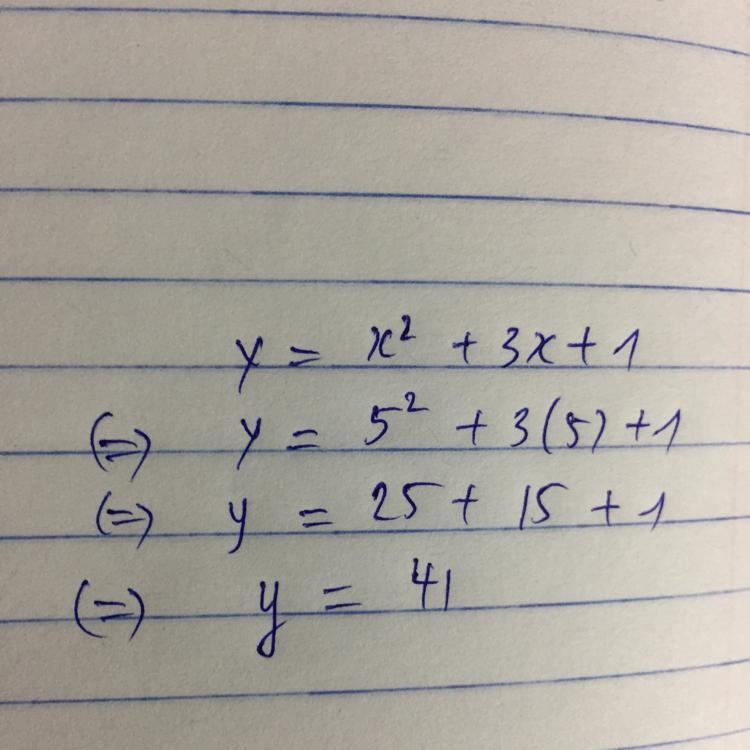 y = x² + 3x + 1
(=) y = 5² + 3(5) + 1
(=) y = 25 + 15 + 1
(=) y = 41